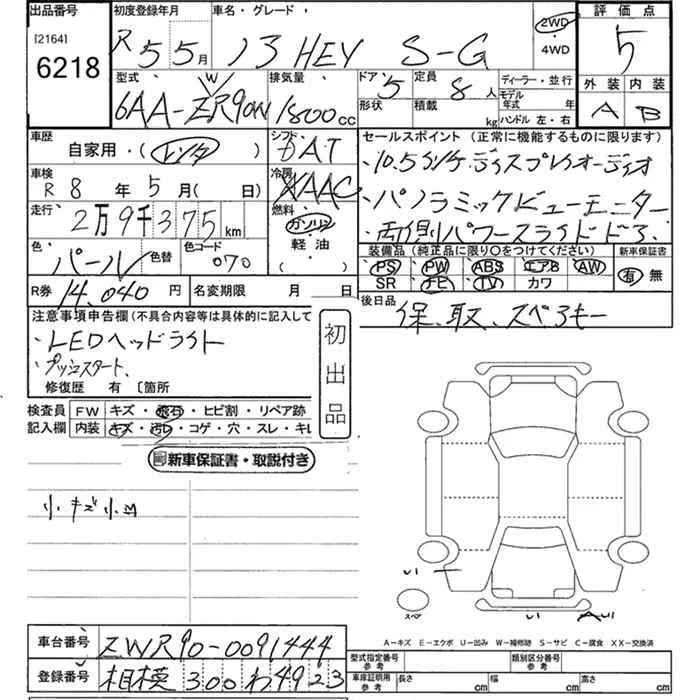 出品番号 初度登録年月 車名・グレード 評価点
[2164]
6218
R 5 5月 13 HEV S-G 2WD・4WD 5
型式 排気量 ドア 形状 定員 積載 ディーラー・並行 モデル年式 年 ハンドル 左・右 外装 内装
6AA-ZWR90W 1800cc 5 8人 kg A B
車歴 自家用・(レンタ) シフト DAT
車検 R 8 年 5 月( 日) 冷房 AAC
走行 2万9千375km 燃料 ガソリン 軽油 ( )
色 パール 色替 色コード 070
R券 14.040円 名変期限 月 日
セールスポイント (正常に機能するものに限ります)
・10.5インチディスプレイオーディオ
・パノラミックビューモニター
・両側パワースライドドア
装備品(純正品に限り○をつけてください) 新車保証書
PS PW ABS エアB AW 有 無
SR ナビ TV カワ
後日品 保、取、スペアキー
注意事項申告欄(不具合内容等は具体的に記入して
・LEDヘッドライト
・プッシュスタート、
修復歴 有 〔箇所
初出品
検査員 FW キズ・飛石・ヒビ割・リペア跡
記入欄 内装 キズ・汚レ・コゲ・穴・スレ・キレ
新車保証書・取説付き
小キズ小凹
スペア
A-キズ E-エクボ U-凹み W-補修跡 S-サビ C-腐食 XX-交換済
車台番号 ZWR90-0091444
登録番号 相模 300 わ 4923
型式指定番号 参考 類別区分番号 参考
車庫証明用 参考 長さ cm 幅 cm 高さ cm